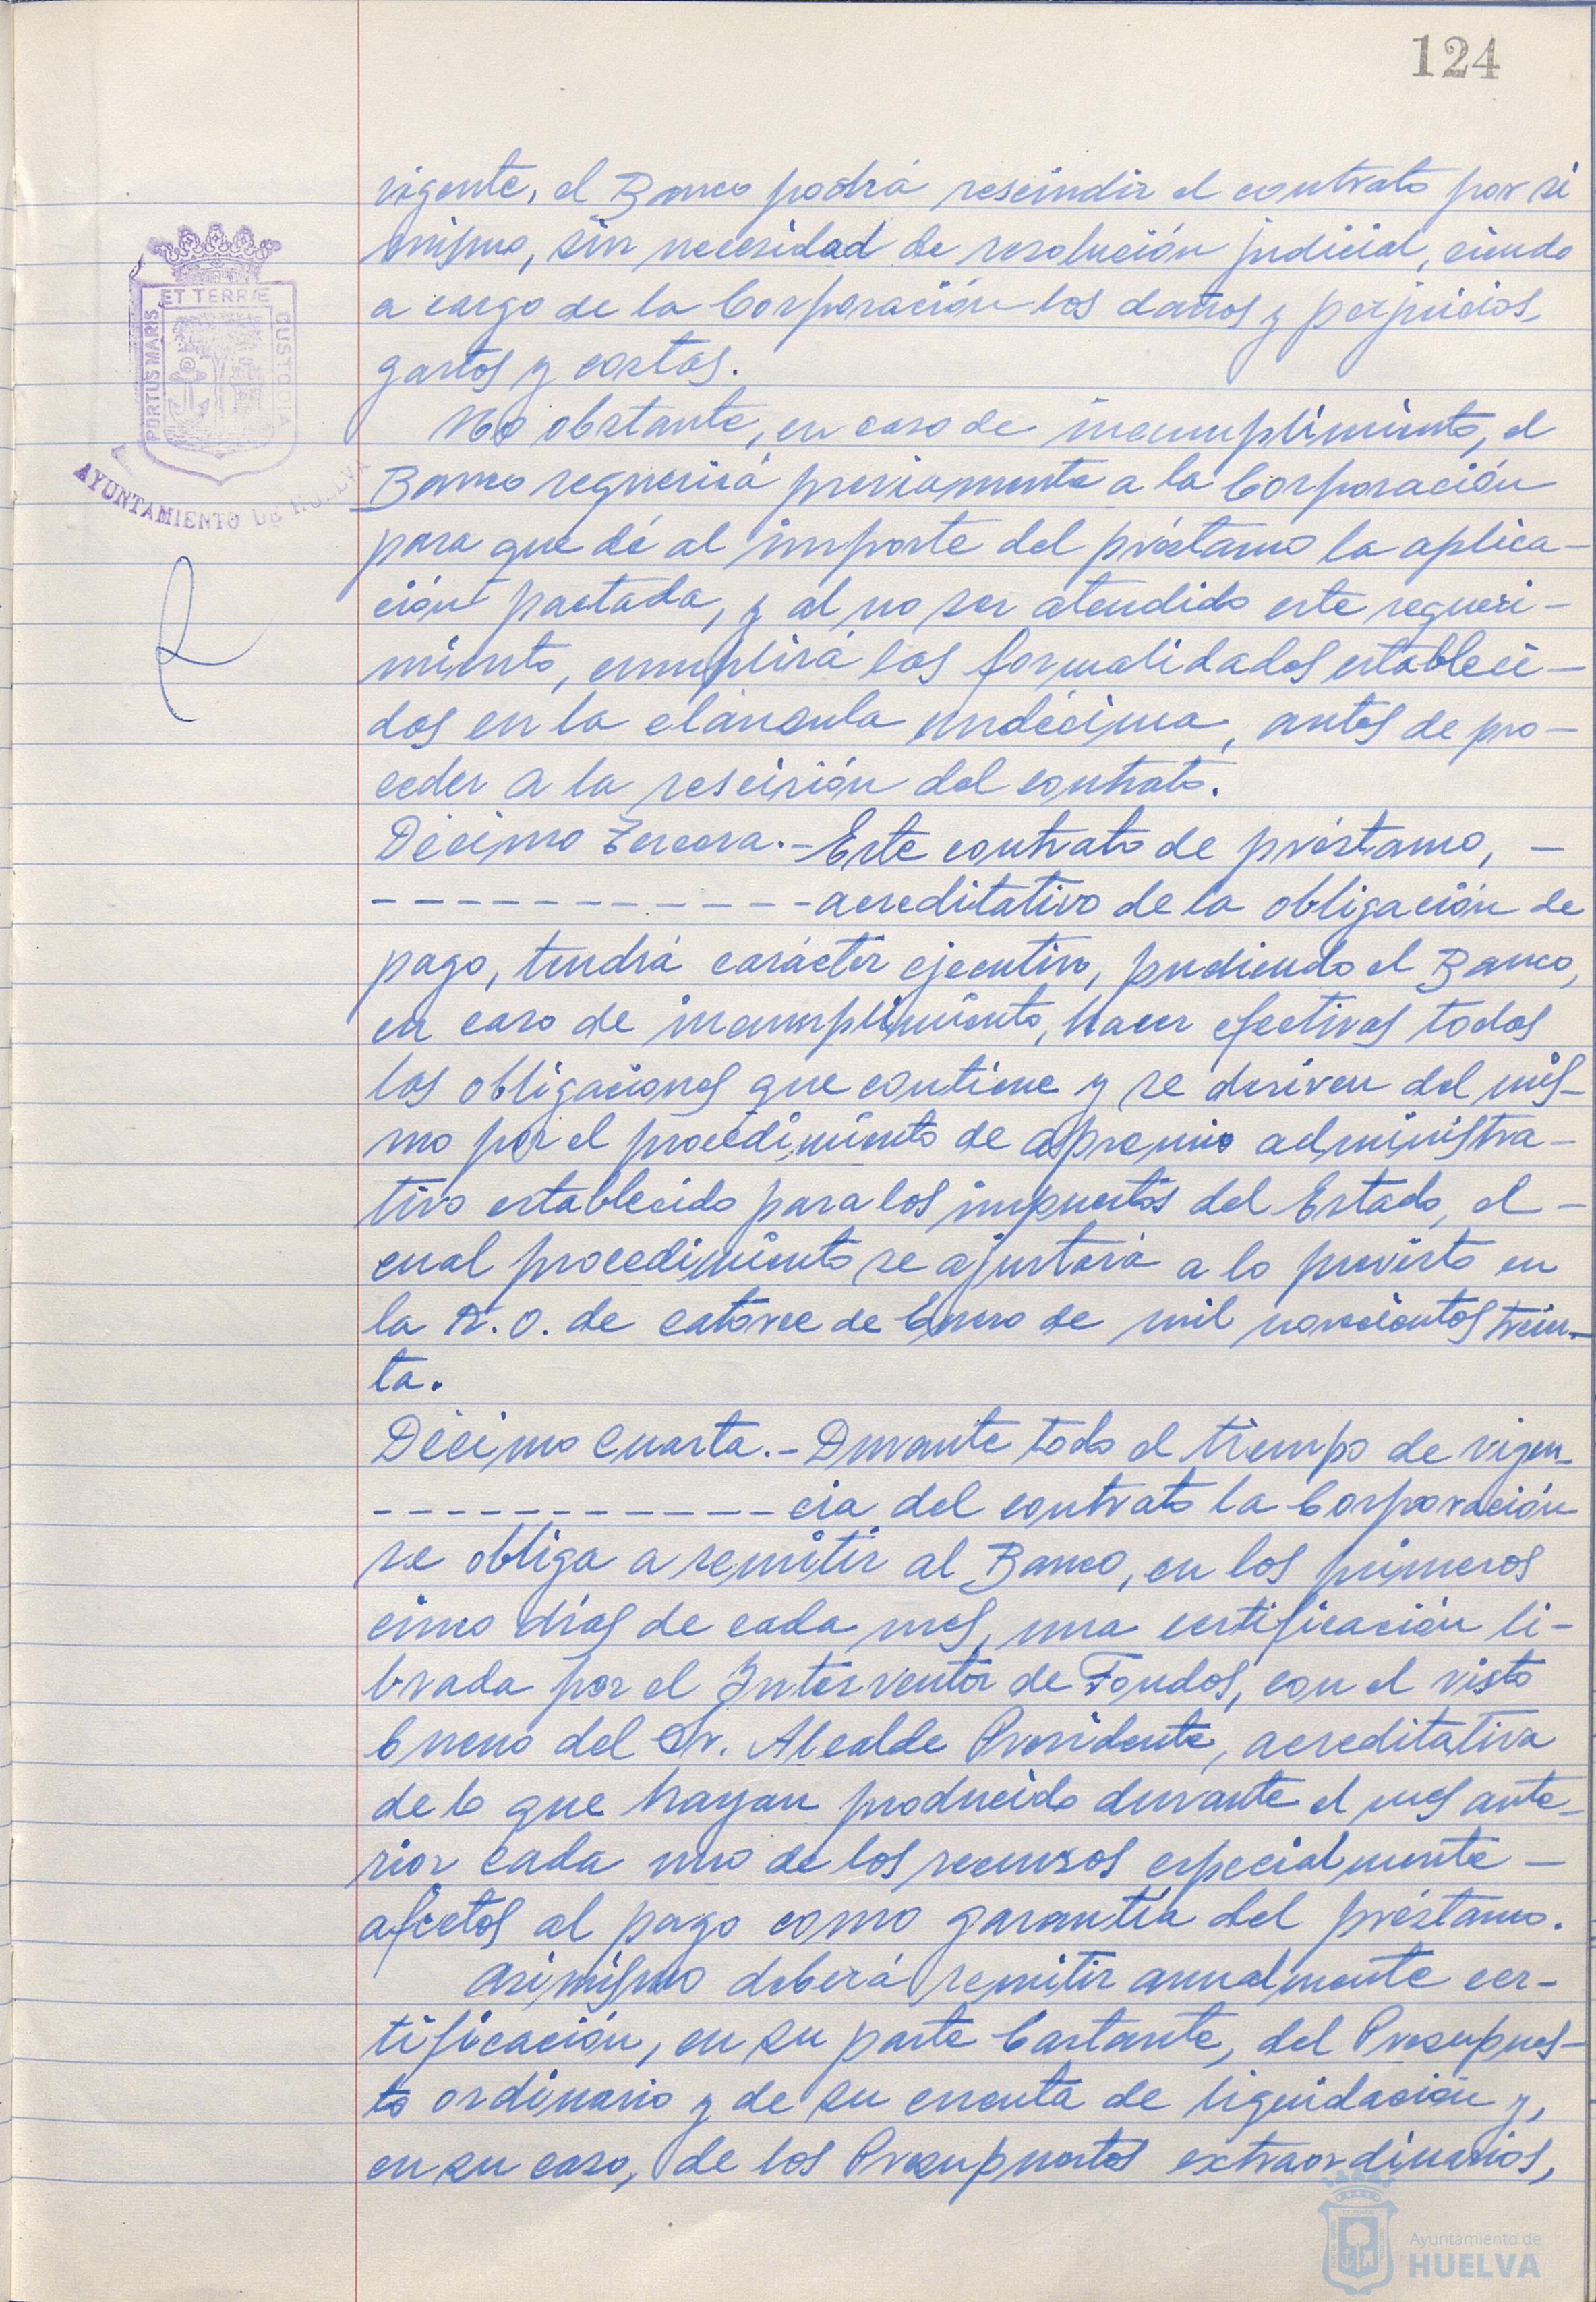 124
vigente, el Banco podrá rescindir el contrato por si
mismo, sin necesidad de resolución judicial, siendo
a cargo de la Corporación los daños y perjuicios,
gastos y costas.
No obstante, en caso de incumplimiento, el
Banco requerirá previamente a la Corporación
para que dé al importe del préstamo la aplica-
ción pactada, y al no ser atendido este requeri-
miento, cumplirá las formalidades estableci-
das en la cláusula undécima, antes de pro-
ceder a la rescisión del contrato.
Décimo Tercera.- Este contrato de préstamo, -
- - - - - - - - - - - - acreditativo de la obligación de
pago, tendrá carácter ejecutivo, pudiendo el Banco,
en caso de incumplimiento, hacer efectivas todas
las obligaciones que contiene y se deriven del mis-
mo por el procedimiento de apremio administra-
tivo establecido para los impuestos del Estado, el -
cual procedimiento se ajustará a lo previsto en
la R.O. de catorce de Enero de mil novecientos trein-
ta.
Décimo Cuarta.- Durante todo el tiempo de vigen-
- - - - - - - - - - - - cia del contrato la Corporación
se obliga a remitir al Banco, en los primeros
cinco días de cada mes, una certificación li-
brada por el Interventor de Fondos, con el visto
bueno del Sr. Alcalde Presidente, acreditativa
de lo que hayan producido durante el mes ante-
rior cada uno de los recursos especialmente -
afectos al pago como garantía del préstamo.
Asimismo deberá remitir anualmente cer-
tificación, en su parte bastante, del Presupues-
to ordinario y de su cuenta de liquidación y,
en su caso, de los Presupuestos extraordinarios,
PORTUS MARIS
ET TERRÆ
CUSTODIA
AYUNTAMIENTO DE HUELVA
Ayuntamiento de
HUELVA